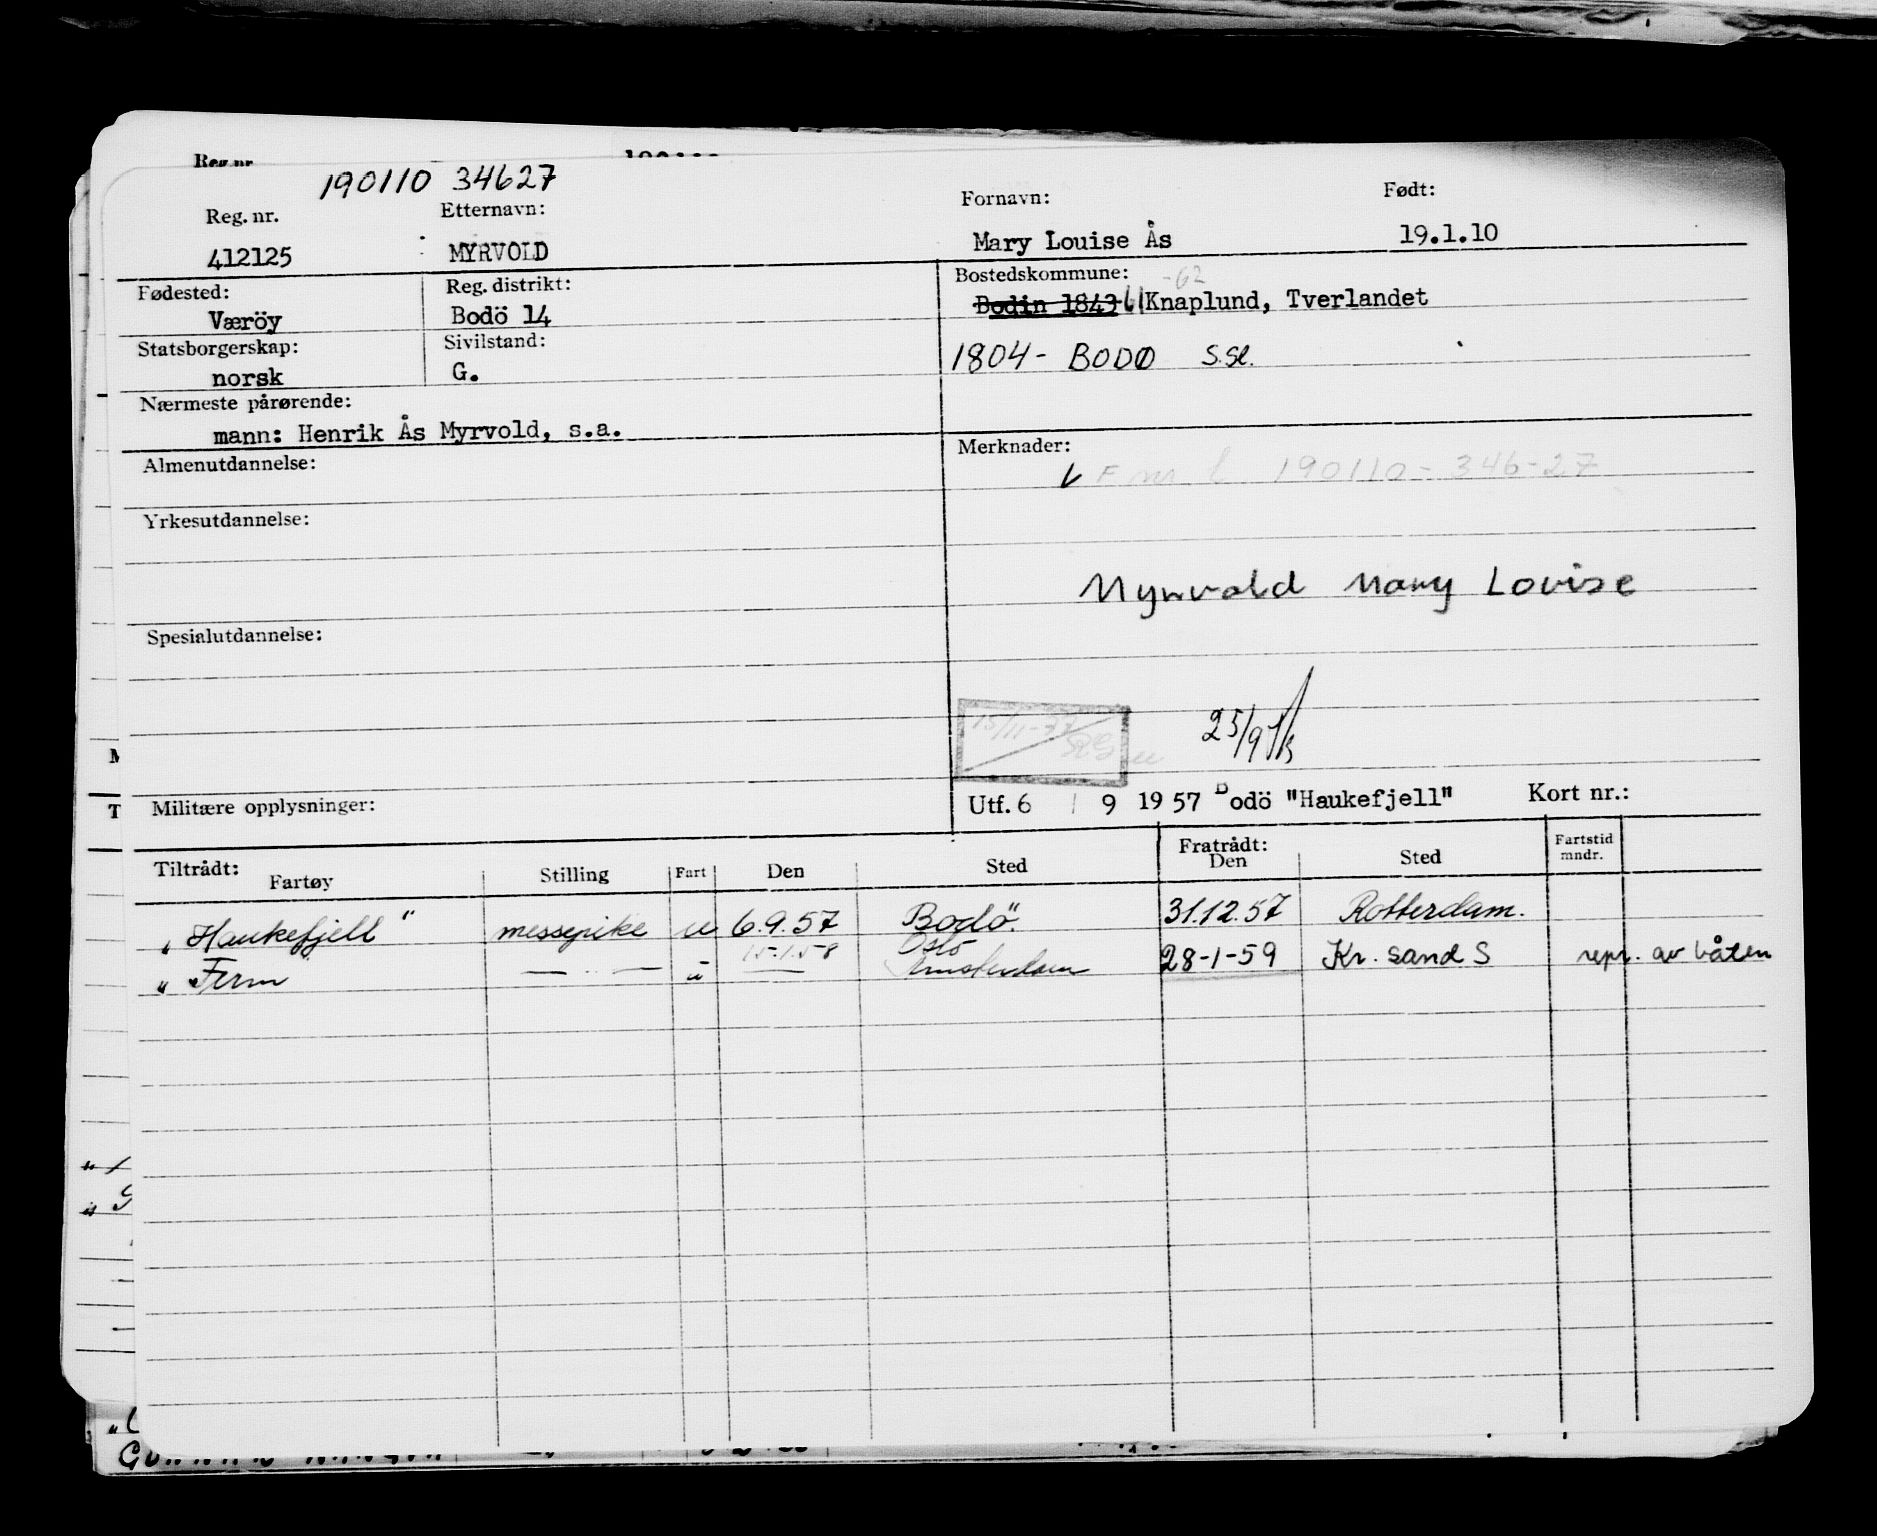 Reg. nr.
190110 34627
Reg. nr. Etternavn: Fornavn: Født:
412125 MYRVOLD Mary Louise Ås 19.1.10
Fødested: Reg. distrikt: Bostedskommune: -62
Væröy Bodö 14 Bodin 1843 61 Knaplund, Tverlandet
Statsborgerskap: Sivilstand:
norsk G. 1804- BODØ S.sl.
Nærmeste pårørende:
mann: Henrik Ås Myrvold, s.a.
Almenutdannelse: Merknader:
F nr. 190110-346-27
Yrkesutdannelse:
Myrvold Mary Louise
Spesialutdannelse:
15/11-77
25/9
Militære opplysninger: Utf. 6 / 9 1957 Bodö "Haukefjell" Kort nr.:
Tiltrådt: Fratrådt:
Fartøy Stilling Fart Den Sted Den Sted Fartstid mndr.
"Haukefjell" messepike u 6.9.57 Bodö. 31.12.57 Rotterdam.
15.1.58 Oslo
" Ferm — " — u — Amsterdam 28-1-59 Kr. sand S repr. av båten